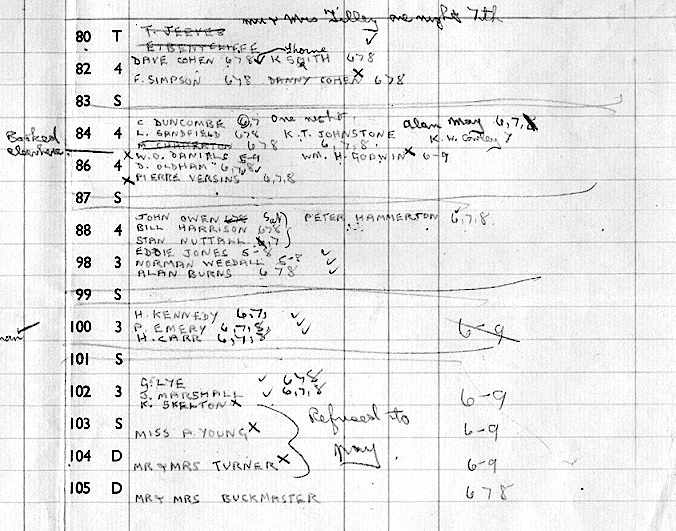 Mr & Mrs Tilley one night 7th
80 T T. JEEVES
E. BENTCLIFFE
Thorne
82 4 DAVE COHEN 678 K SMITH 678
F. SIMPSON 678 DANNY COHEN 678
83 S
84 4 C DUNCOMBE 6,7 One night Alan May 6,7,8
L. SANDFIELD 678 K.T. JOHNSTONE K.W. Cowley 7
M CHARRETON 678 6,7,8
Booked elsewhere
86 4 W.O. DANIELS 5-9 WM. H. GODWIN 6-9
D. OLDHAM 6,7,8
PIERRE VERSINS 6,7,8
87 S
88 4 JOHN OWEN Sat PETER HAMMERTON 6,7,8
BILL HARRISON 678
STAN NUTTALL 6,7
98 3 EDDIE JONES 5-8
NORMAN WEEDALL 5-8
ALAN BURNS 678
99 S
100 3 H. KENNEDY 6,7,
P. EMERY 6,7,8, 6-9
H. CARR 6,7,8
101 S
102 3 G. LYE 678
J. MARSHALL 6,7,8 6-9
K. SKELTON
Refused to pay
103 S MISS A. YOUNG 6-9
104 D MR & MRS TURNER 6-9
105 D MR & MRS BUCKMASTER 678